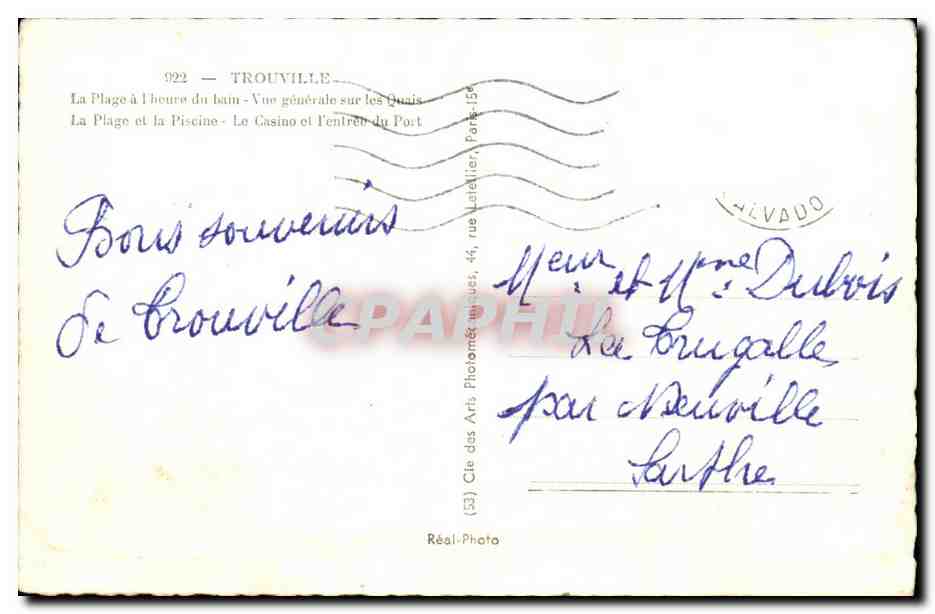 922 — TROUVILLE
La Plage à l'heure du bain - Vue générale sur les Quais
La Plage et la Piscine - Le Casino et l'entrée du Port
Bons souvenirs
de Trouville
(53) Cie des Arts Photomécaniques, 44, rue Letellier, Paris-15e
CALVADO
Meur et Mme Dubois
La Trugalle
par Neuville
Sarthe
CPAPHIL
Réal-Photo